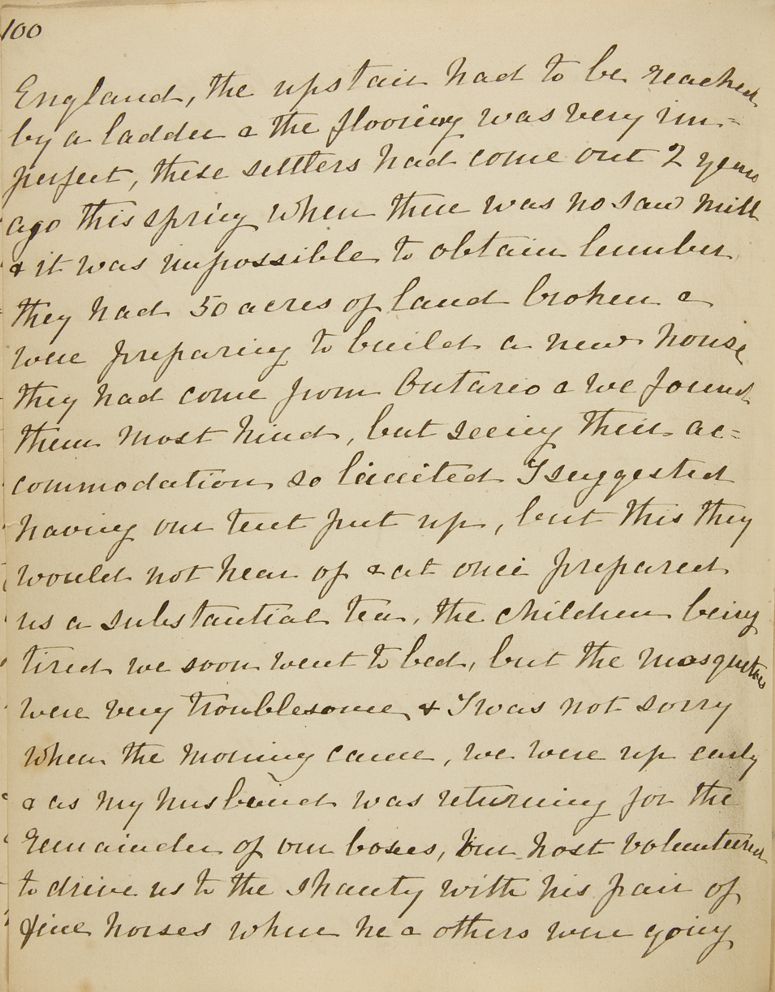 100
England, the upstair had to be reached
by a ladder & the flooring was very im-
perfect, these settlers had come out 2 years
ago this spring when there was no saw mill
& it was impossible to obtain lumber
they had 50 acres of land broken &
were preparing to build a new house
they had come from Ontario & we found
them most kind, but seeing their ac=
commodation so limited I suggested
having our tent put up, but this they
would not hear of & at once prepared
us a substantial tea, the children being
tired we soon went to bed, but the mosquitoes
were very troublesome & I was not sorry
when the morning came, we were up early
& as my husband was returning for the
remainder of our boxes, our host volunteered
to drive us to the shanty with his pair of
fine horses where he & others were going